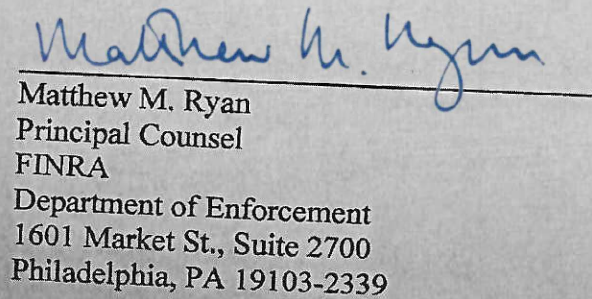 Matthew M. Ryan
Matthew M. Ryan
Principal Counsel
FINRA
Department of Enforcement
1601 Market St., Suite 2700
Philadelphia, PA 19103-2339